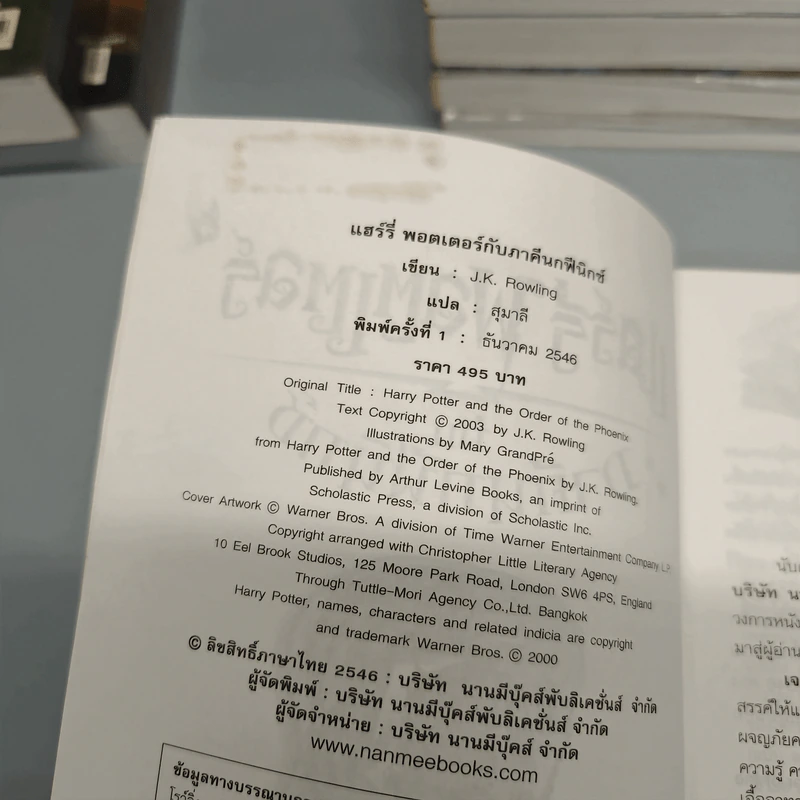 แฮร์รี่ พอตเตอร์กับภาคีนกฟีนิกซ์
เขียน : J.K. Rowling
แปล : สุมาลี
พิมพ์ครั้งที่ 1 : ธันวาคม 2546
ราคา 495 บาท
Original Title : Harry Potter and the Order of the Phoenix
Text Copyright © 2003 by J.K. Rowling
Illustrations by Mary GrandPré
from Harry Potter and the Order of the Phoenix by J.K. Rowling.
Published by Arthur Levine Books, an imprint of
Scholastic Press, a division of Scholastic Inc.
Cover Artwork © Warner Bros. A division of Time Warner Entertainment Company L.P.
Copyright arranged with Christopher Little Literary Agency
10 Eel Brook Studios, 125 Moore Park Road, London SW6 4PS, England
Through Tuttle-Mori Agency Co.,Ltd. Bangkok
Harry Potter, names, characters and related indicia are copyright
and trademark Warner Bros. © 2000
© ลิขสิทธิ์ภาษาไทย 2546 : บริษัท นานมีบุ๊คส์พับลิเคชั่นส์ จำกัด
ผู้จัดพิมพ์ : บริษัท นานมีบุ๊คส์พับลิเคชั่นส์ จำกัด
ผู้จัดจำหน่าย : บริษัท นานมีบุ๊คส์ จำกัด
www.nanmeebooks.com
ข้อมูลทางบรรณานุก
บริษัท นา
วงการหนัง
มาสู่ผู้อ่าน
เจ
สรรค์ให้แ
ผจญภัยค
ความรู้ ค